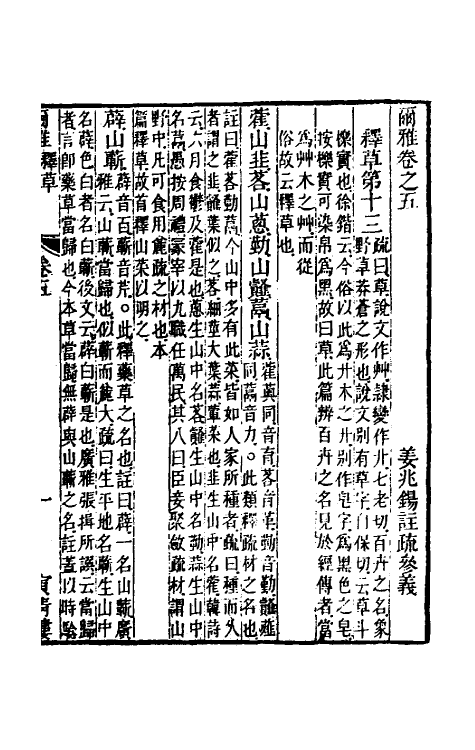 爾雅卷之五
姜兆錫註疏參義
釋草第十三
疏曰草說文作艸隷變作廾七老切百卉之名象
野草莽蒼之形也說文别有草字自保切云草斗
櫟實也徐鍇云今俗以此為艸木之艸别作皂字為黑色之皂
按櫟實可染帛為黑故曰草此篇辨百卉之名見於經傳者當
為艸木之艸而從
俗故云釋草也
藿山韭茖山蔥葝山䪥蒚山蒜
藿英同音育茖音革葝音勤䪥薤
同蒚音力。此類釋疏材之名也
註曰藿茖葝蒚今山中多有此菜皆如人家所種者疏曰種而久
者謂之韭䪥葉似之茖細莖大葉蒜葷菜也韭生山中名藿韓詩
云六月食鬱及藿是也蔥生山中名茖䪥生山中名葝蒜生山中
名蒚愚按周禮冢宰以九職任萬民其八曰臣妾聚斂疏材謂山
野中凡可食用能疏之材也本
篇釋草故首釋山菜以明之
薜山蘄
薜音百蘄音芹。此釋藥草之名也註曰薜一名山蘄廣
雅云山蘄當歸也似蘄而麄大疏曰生平地名蘄生山中
名薜色白者名白蘄後文云薜白蘄是也廣雅張揖所誤云當歸
者言即藥草當歸也今本草當歸無薜與山蘄之名註蓋以時驗
爾雅 釋草
卷五
一
寅清樓